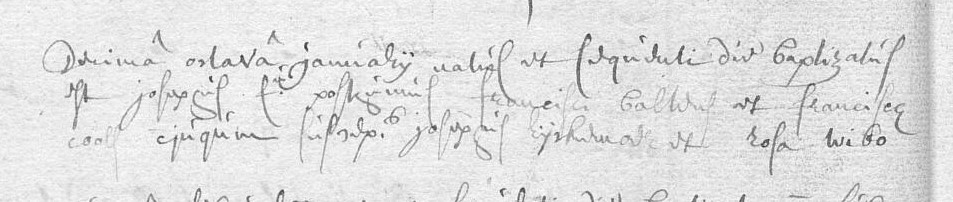 Decimâ octavâ januarij natus et sequenti die baptizatus
est josephus f.s posthumus francisci balteus et franciscæ
cools quem suscep. josephus et rosa wibo